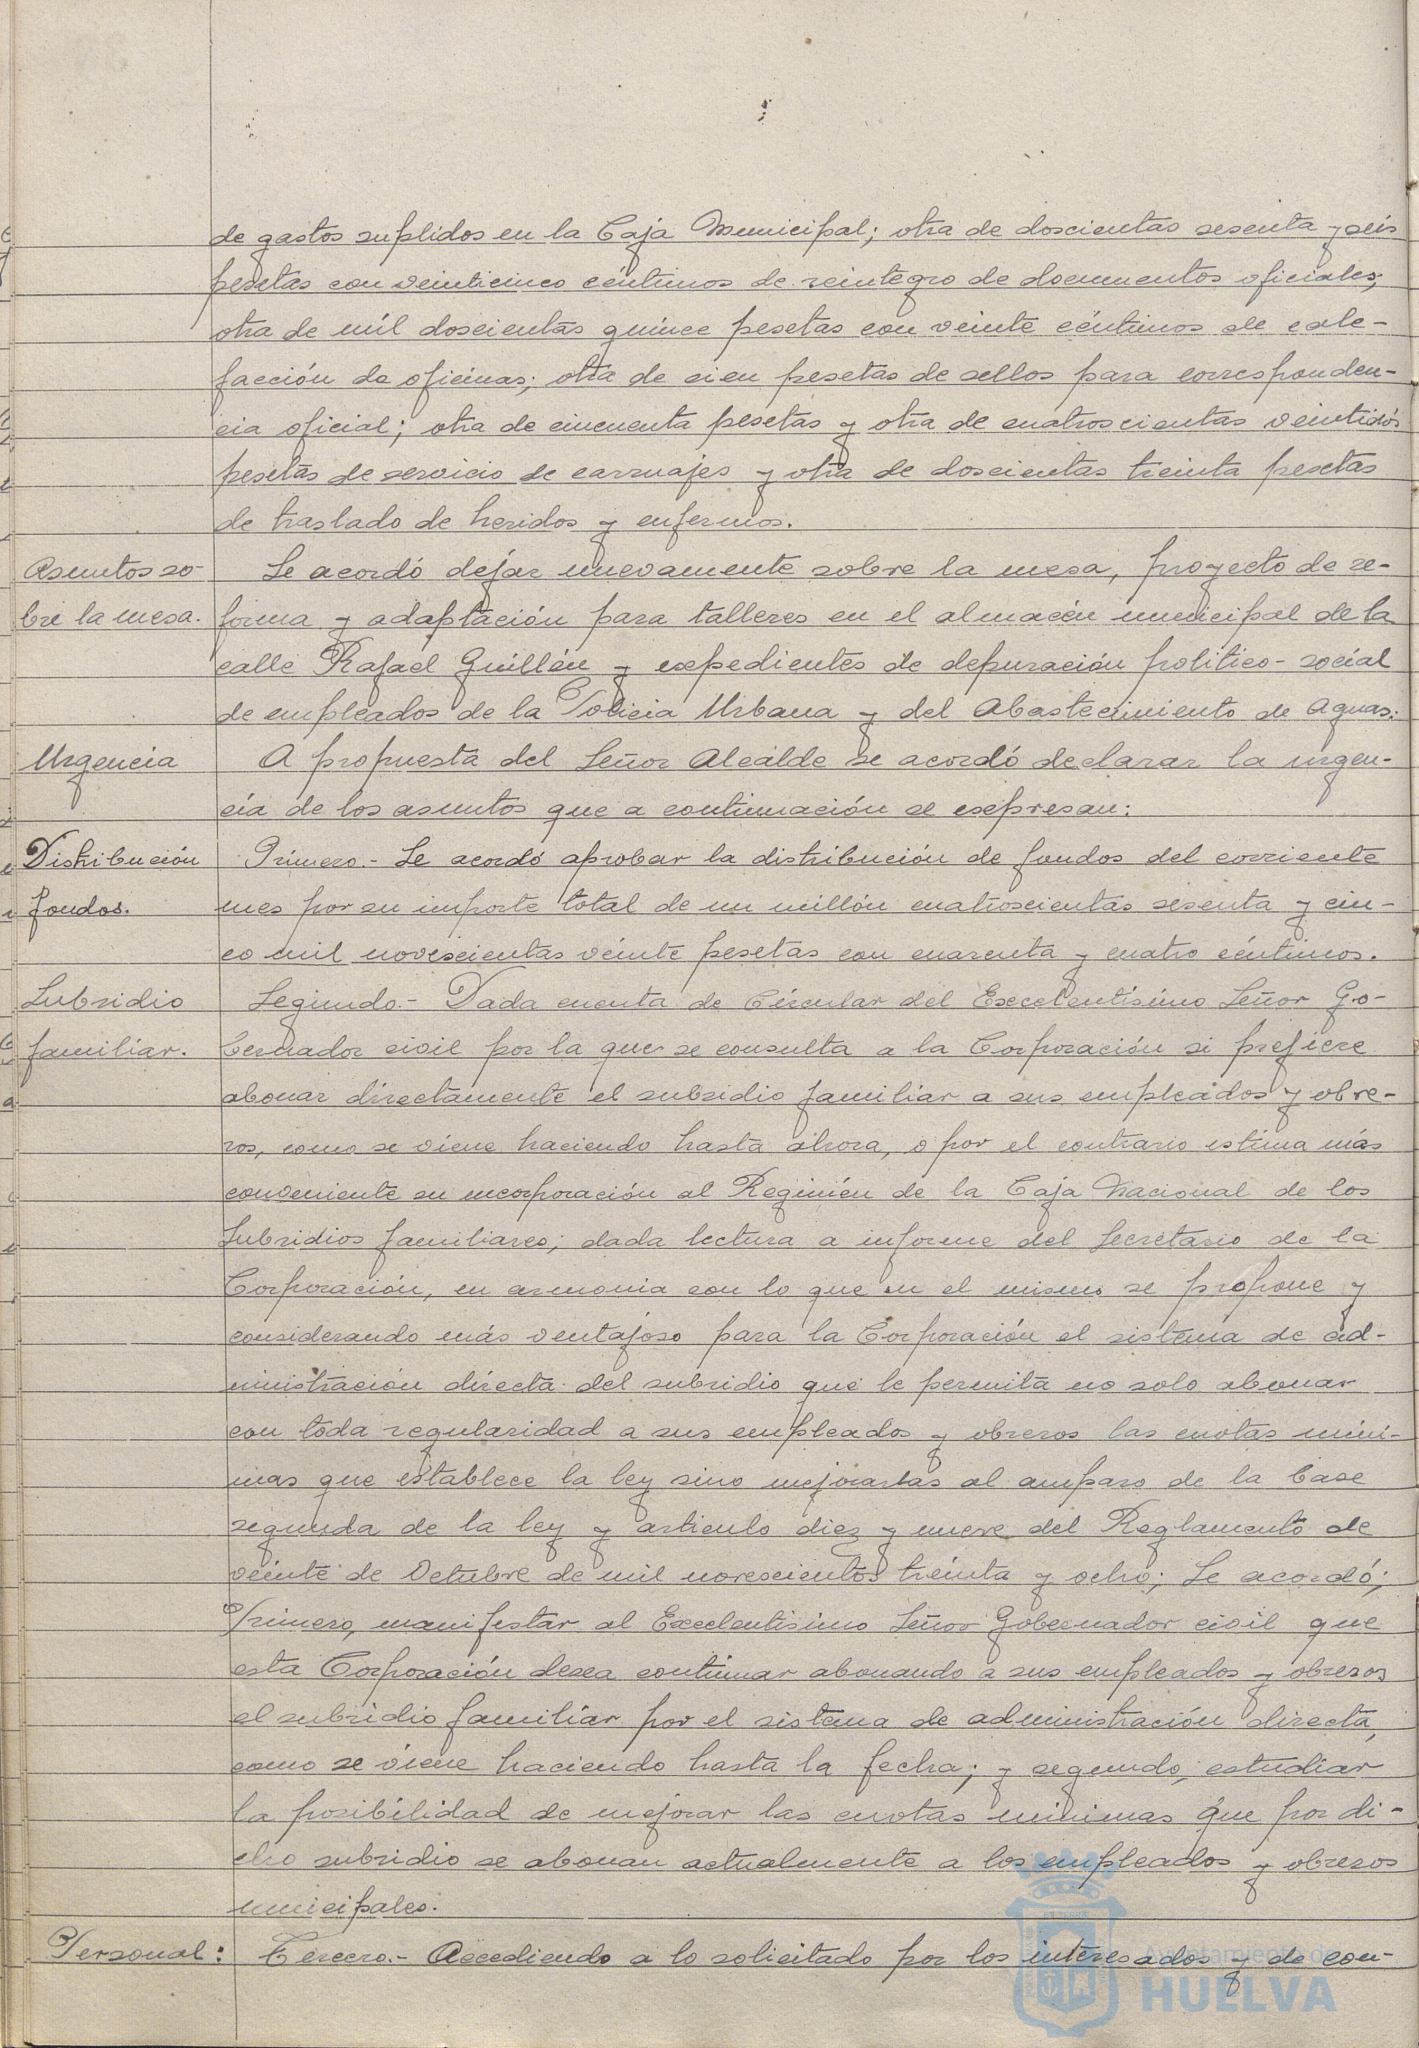 de gastos suplidos en la Caja Municipal; otra de doscientas sesenta y seis
pesetas con veinticinco céntimos de reintegro de documentos oficiales;
otra de mil doscientas quince pesetas con veinte céntimos de cale-
facción de oficinas; otra de cien pesetas de sellos para corresponden-
cia oficial; otra de cincuenta pesetas y otra de cuatroscientas veintidós
pesetas de servicio de carruajes y otra de doscientas treinta pesetas
de traslado de heridos y enfermos.
Asuntos so- Se acordó dejar nuevamente sobre la mesa, proyecto de re-
bre la mesa. forma y adaptación para talleres en el almacén municipal de la
calle Rafael Guillén y expedientes de depuración politico-social
de empleados de la Policia Urbana y del Abastecimiento de Aguas.
Urgencia A propuesta del Señor Alcalde se acordó declarar la urgen-
cia de los asuntos que a continuación se expresan:
Distribución Primero.- Se acordó aprobar la distribución de fondos del corriente
fondos. mes por su importe total de un millón cuatroscientas sesenta y cin-
co mil novescientas veinte pesetas con cuarenta y cuatro céntimos.
Subsidio Segundo.- Dada cuenta de Circular del Excelentisimo Señor Go-
familiar. bernador civil por la que se consulta a la Corporación si prefiere
abonar directamente el subsidio familiar a sus empleados y obre-
ros, como se viene haciendo hasta ahora, o por el contrario estima más
conveniente su incorporación al Regimén de la Caja Nacional de los
Subsidios familiares; dada lectura a informe del Secretario de la
Corporación, en armonia con lo que en el mismo se propone y
considerando más ventajoso para la Corporación el sistema de ad-
ministración directa del subsidio que le permita no solo abonar
con toda regularidad a sus empleados y obreros las cuotas míni-
mas que establece la ley sino mejorarlas al amparo de la base
segunda de la ley y articulo diez y nueve del Reglamento de
veinte de Octubre de mil novescientos treinta y ocho; Se acordó;
Primero, manifestar al Excelentisimo Señor Gobernador civil que
esta Corporación desea continuar abonando a sus empleados y obreros
el subsidio familiar por el sistema de administración directa,
como se viene haciendo hasta la fecha; y segundo, estudiar
la posibilidad de mejorar las cuotas minimas que por di-
cho subsidio se abonan actualmente a los empleados y obreros
municipales.
Personal: Tercero.- Accediendo a lo solicitado por los interesados y de con-
Ayuntamiento de
HUELVA